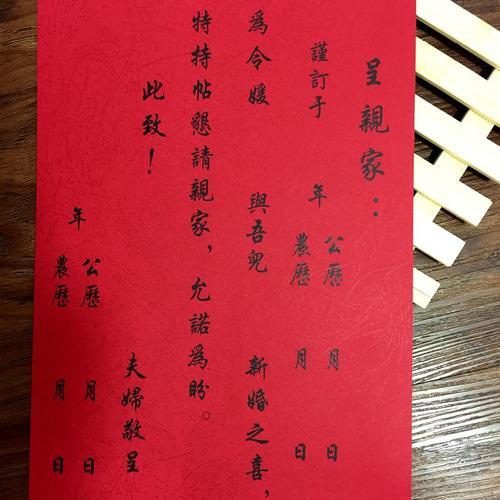 呈親家：
謹訂于 年 公歷 月 日
農歷 月 日
為令媛 與吾兒 新婚之喜，
特持帖懇請親家，允諾為盼。
此致！
夫婦敬呈
年 公歷 月 日
農歷 月 日